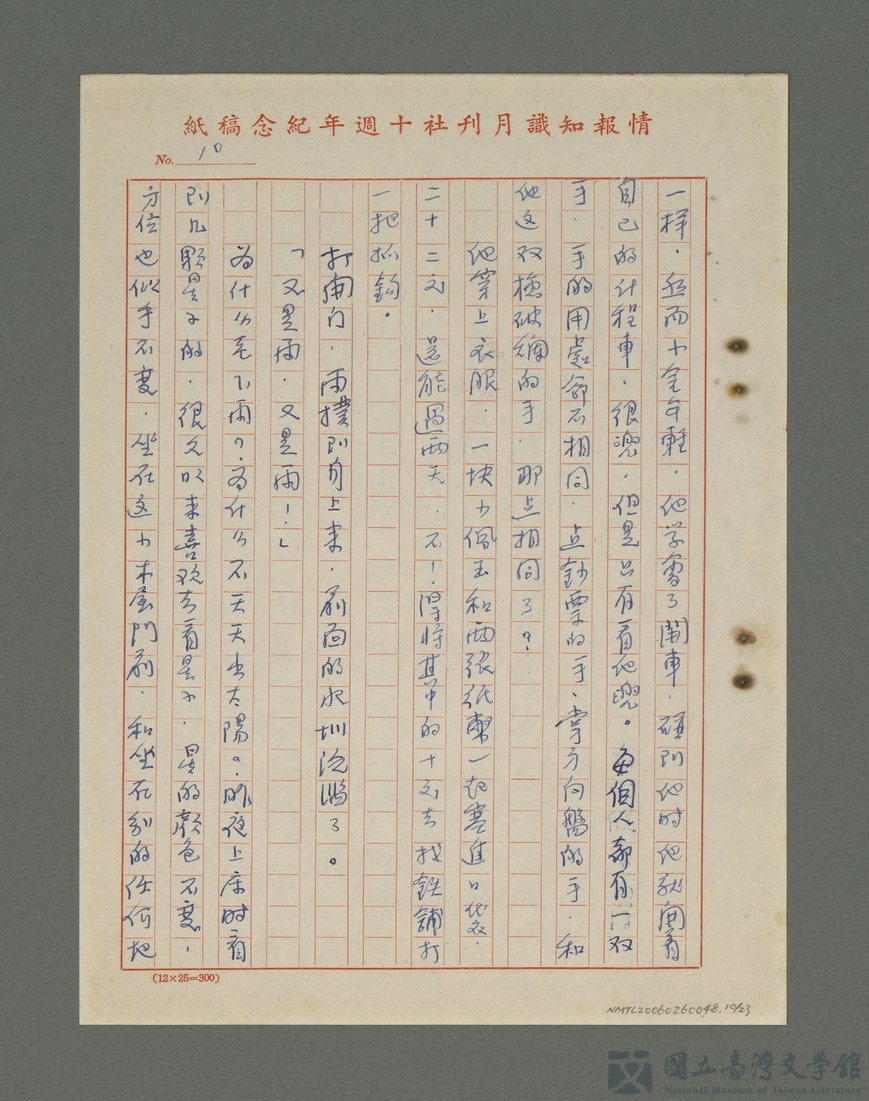 情報知識月刊社十週年紀念稿紙
No. 10
一样．然而小金年輕．他学會了開車．碰到他时他就開着
自己的计程車．很兇．但是只有看他兇。每個人都有一双
手．手的用處都不相同．点鈔票的手．掌方向盤的手．和
他这双撿破爛的手．那点相同了？
他穿上衣服．一块小佩玉和兩張纸幣一起塞進口袋．
二十二元．還能過兩天．不！得将其中的十元去找鉄舖打
一把抓鈎。
打開门．雨撲到身上来．前面的水圳泛濫了。
「又是雨．又是雨！」
為什么老下雨？為什么不天天出太陽？昨夜上床时看
到几顆星子的．很久以来喜欢去看星子．星的顏色不变．
方位也似乎不变．坐在这小木屋門前．和坐在别的任何地
(12×25=300)
NMTL20060260048.10/23
國立臺灣文學館
National Museum of Taiwan Literature